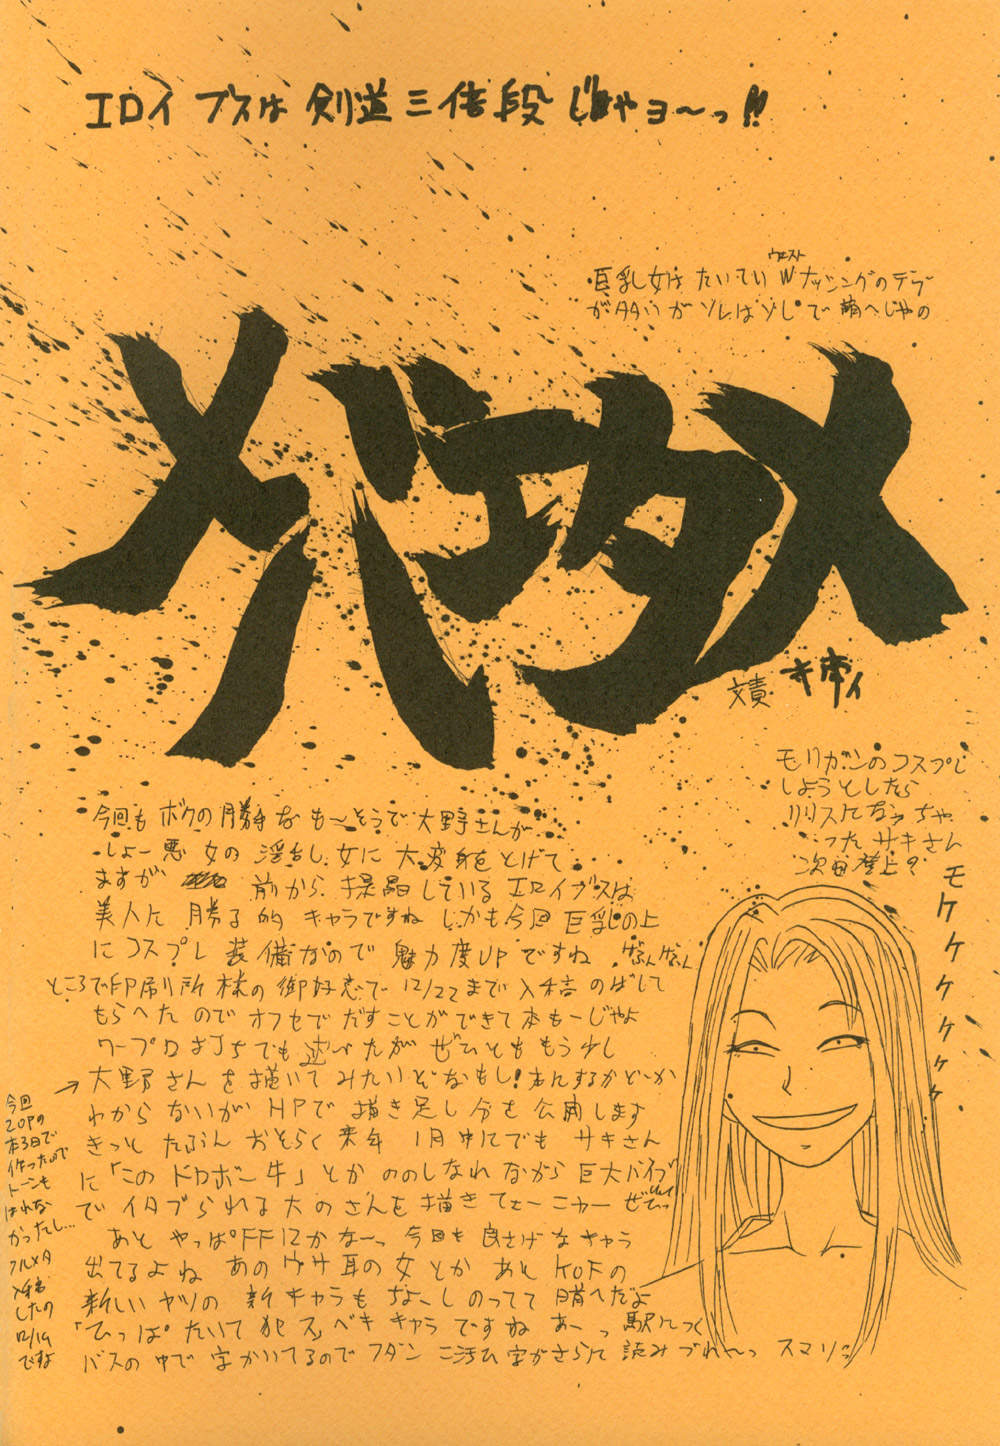 エロイ ブスは 剣道三倍段 じゃヨ〜っ!!
ウエスト
巨乳女は たいてい Wナッシングのデブ
が多いが ソレはソレで 萌へじゃの
メバエタメ
文責
モリガンのコスプレ
しようとしたら
リリスになっちゃ
った サキさん
次回登上?
モケケケケケケ
今回も ボクの勝手な も〜そうで 大野さんが
しょー悪女の 淫乱し女に 大変身をとげて
ますが 前から 提唱している エロイブスは
美人に 勝る的 キャラですね しかも今回 巨乳の上
にコスプレ 装備なので 魅力度UPですね
ところで印刷所様の御好意で 12/22まで入稿 のばして
もらへたので オフセでだすことができて本もーじゃよ
ワープロ打ちでも 述べたが ぜひとも もう少し
→大野さんを描いてみたいぞなもし! 本にするかどーか
わからないが HPで 描き足し分を 公開します
きっと たぶん おそらく 来年 1月中にでも サキさん
に「このドロボー牛」とか ののしられながら 巨大バイブ
で イタブられる 大のさんを描きてぇーニャー ぜひっ
あと やっぱFF12かな〜っ 今回も 良さげなキャラ
出てるよね あのウサ耳の女とか あと KOFの
新しいヤツの 新キャラも
「ひっぱたいて 犯ス」ベキ キャラですね あーっ 駅につく
バスの中で 字かいてるので フダン 汚ひ字がさらに 読みづれ〜っ スマソっ
今回
20Pの
本3日で
作ったので
トーンも
はれな
かったし…
フルメタ
入稿
したの
12/19
ですよ